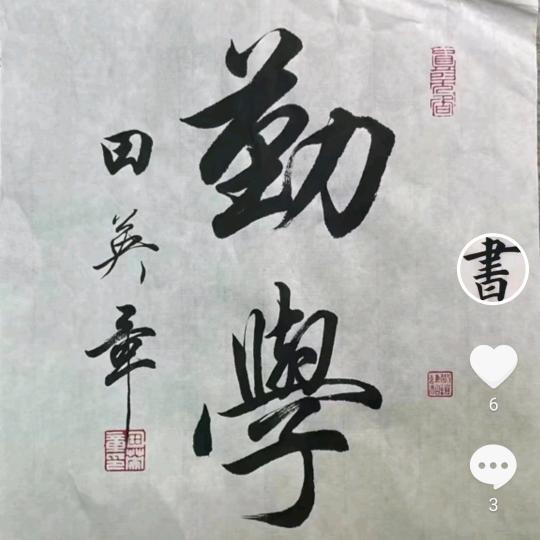 勤學
田英章
書
6
3